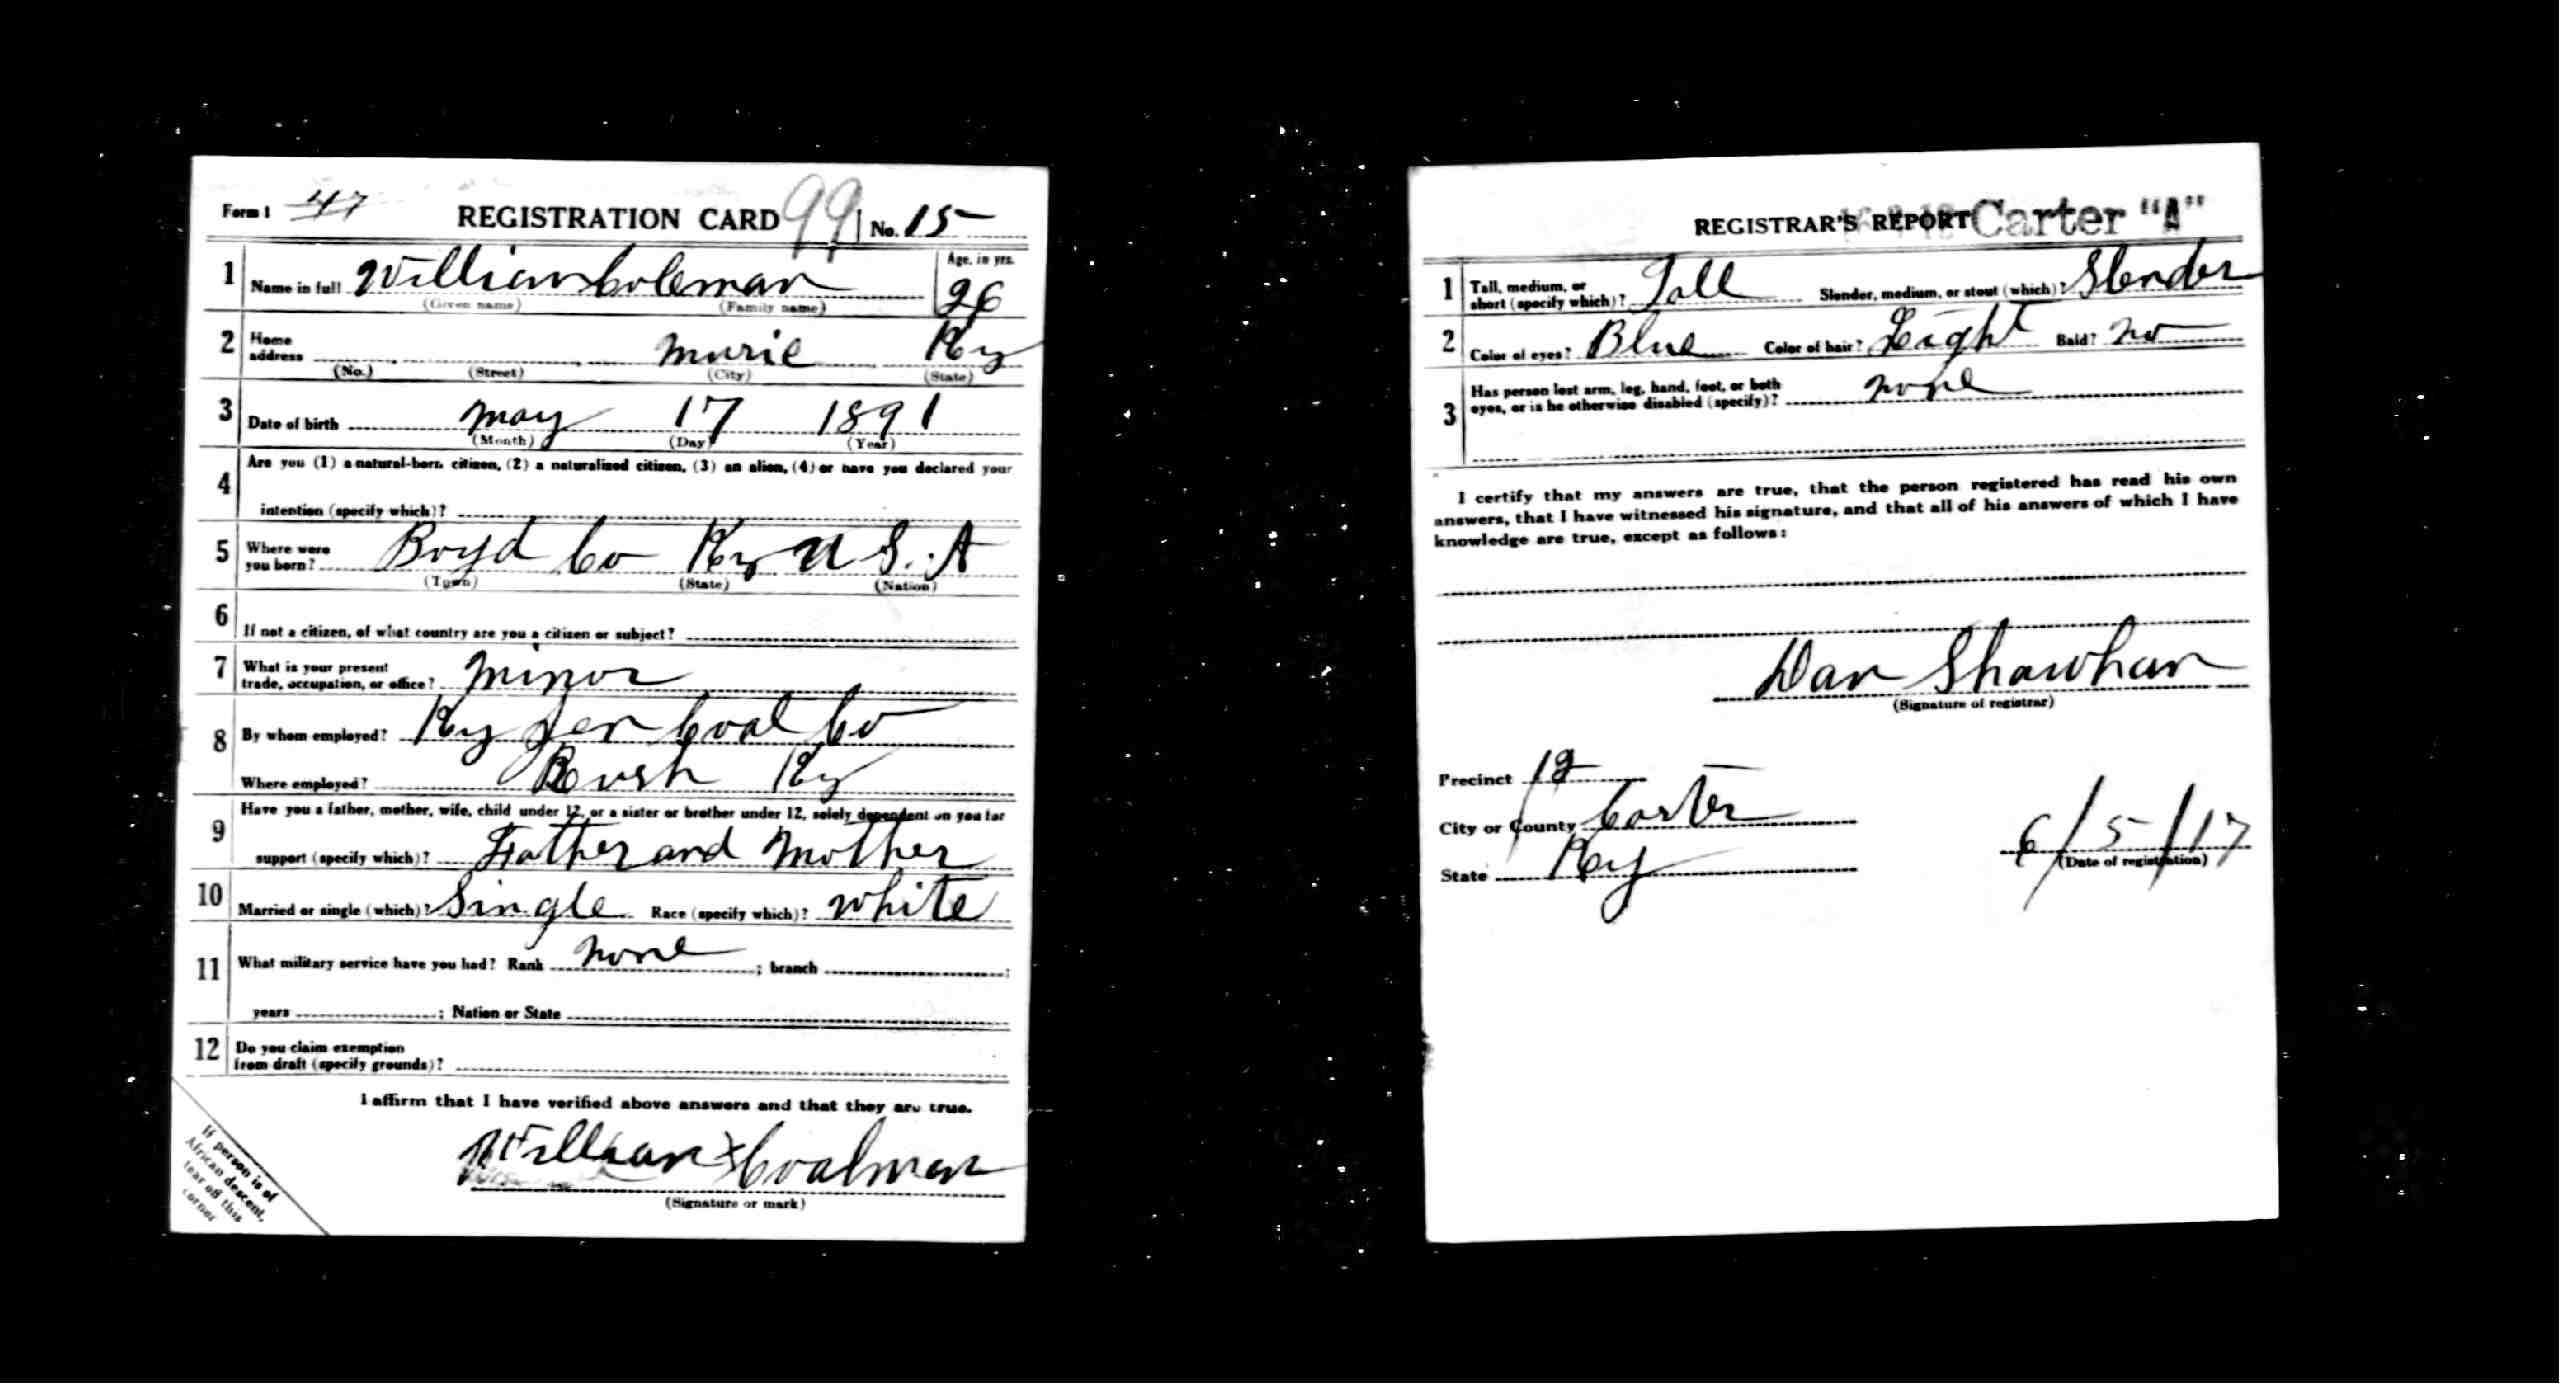 Form 1 47 REGISTRATION CARD 99 No. 15
1 Name in full William Coleman Age, in yrs. 26
(Given name) (Family name)
2 Home address Murie Ky
(No.) (Street) (City) (State)
3 Date of birth May 17 1891
(Month) (Day) (Year)
4 Are you (1) a natural-born citizen, (2) a naturalized citizen, (3) an alien, (4) or have you declared your
intention (specify which)?
5 Where were you born? Boyd Co Ky U S. A
(Town) (State) (Nation)
6 If not a citizen, of what country are you a citizen or subject?
7 What is your present trade, occupation, or office? Minor
8 By whom employed? Ky Coal Co
Where employed? Rush Ky
9 Have you a father, mother, wife, child under 12, or a sister or brother under 12, solely dependent on you for
support (specify which)? Father and Mother
10 Married or single (which)? Single Race (specify which)? White
11 What military service have you had? Rank none ; branch ;
years ; Nation or State
12 Do you claim exemption
from draft (specify grounds)?
I affirm that I have verified above answers and that they are true.
William X Coalman
(Signature or mark)
If person is of
African descent,
tear off this
corner
REGISTRAR'S REPORT Carter "A"
1 Tall, medium, or short (specify which)? Tall Slender, medium, or stout (which)? Slender
2 Color of eyes? Blue Color of hair? Light Bald? no
3 Has person lost arm, leg, hand, foot, or both
eyes, or is he otherwise disabled (specify)? none
I certify that my answers are true, that the person registered has read his own
answers, that I have witnessed his signature, and that all of his answers of which I have
knowledge are true, except as follows:
Dan Shawhan
(Signature of registrar)
Precinct 12
City or County Carter
State Ky
6/5/17
(Date of registration)